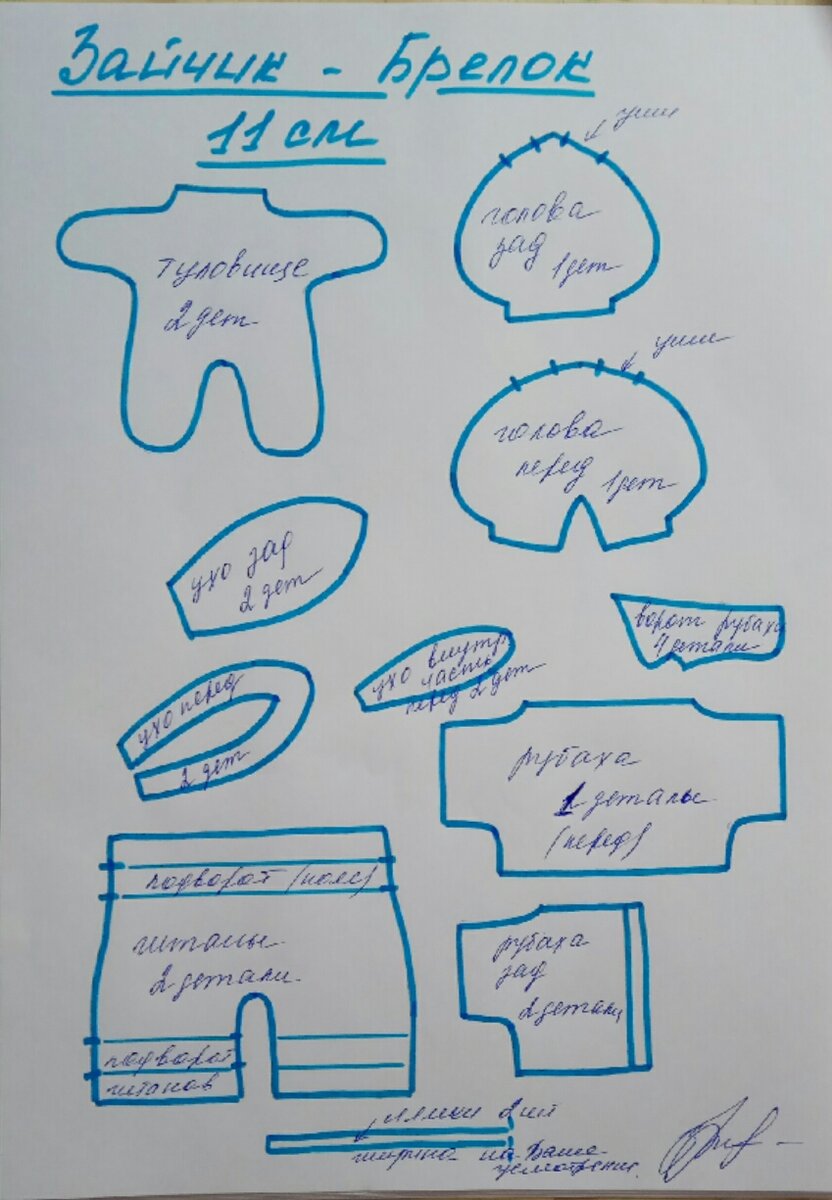 Зайчик - Брелок
11 см
туловище
2 дет
уши
голова
зад
1 дет
уши
голова
перед
1 дет
ухо зад
2 дет
ухо перед
2 дет
ухо внутр.
часть
перед 2 дет
ворот рубахи
4 детали
рубаха
1 деталь
(перед)
подворот (пояс)
штаны
2 детали
подворот
штанов
рубаха
зад
2 детали
лямки 2 шт
ширина на Ваше
усмотрение